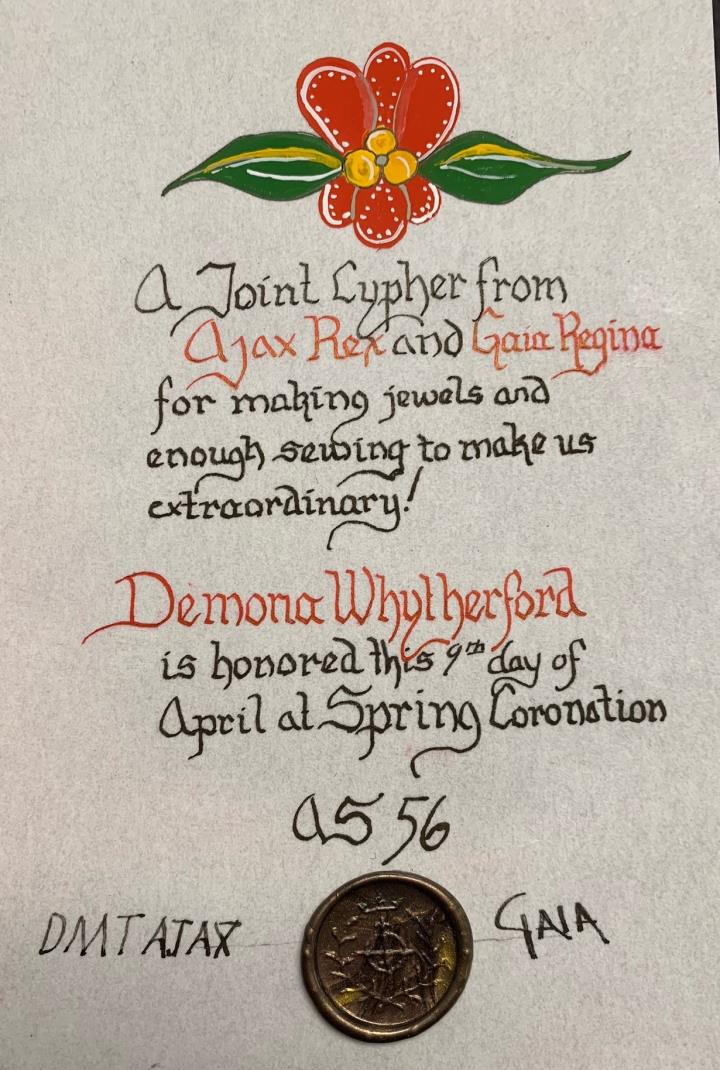 A Joint Cypher from
Ajax Rex and Gaia Regina
for making jewels and
enough sewing to make us
extraordinary!
Demona Whytherford
is honored this 9th day of
April at Spring Coronation
AS 56
DMT AJAX GAIA